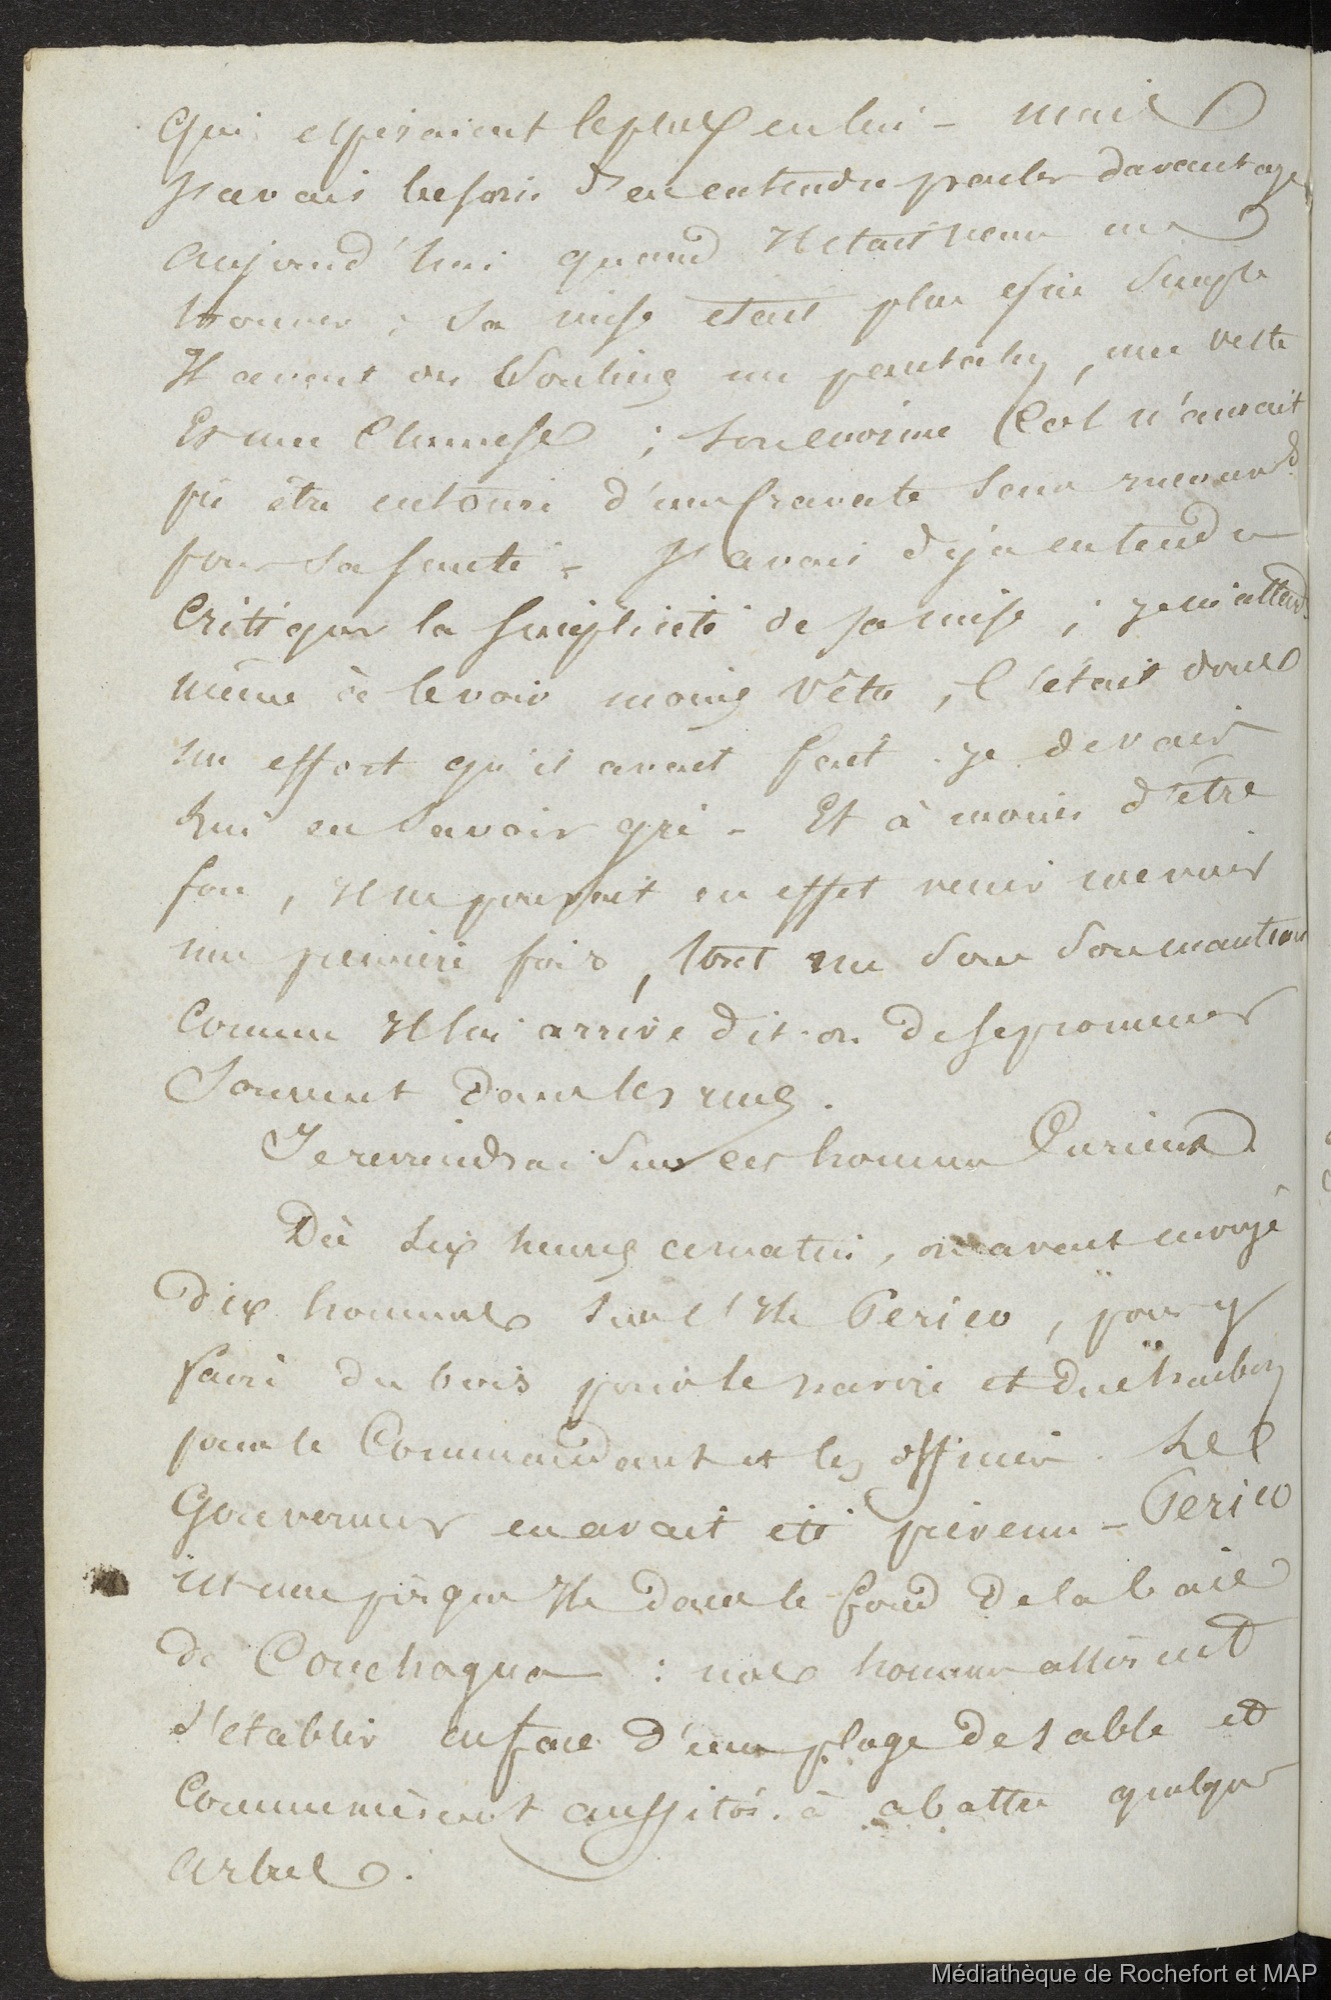 qui espéraient le plus en lui - mais
J'avais besoin d'en entendre parler davantage
aujourd'hui quand Il était venu me
trouver ; Sa mise était plus que Simple
Il avait des Souliers un pantalon, une veste
Et une Chemise ; Son énorme Col n'aurait
pû être entouré d'une Cravate Sans
pour sa santé - J'avais déjà entendu
Critiquer la Simplicité de sa mise ; je m'attends
même à le voir moins vêtu, C'était donc
un effort qu'il avait fait . je devais
lui en Savoir gré - Et à moins d'être
fou, Il ne pouvait en effet venir me voir
une première fois, tout nu Sous Son manteau
Comme Il lui arrive dit-on de se promener
Souvent dans les rues.
Je reviendrai Sur cet homme Curieux.
Dès Six heures ce matin, on avait envoyé
dix hommes Sur l'Ile Perico, pour y
faire du bois pour le navire et du charbon
pour le Commandant et les officiers. Le
Gouverneur en avait été prévenu - Perico
est une presque Ile dans le fond de la baie
de Conchagua : nos hommes allèrent
s'établir en face d'une plage de sable et
Commencèrent aussitôt à abattre quelques
arbres.
Médiathèque de Rochefort et MAP